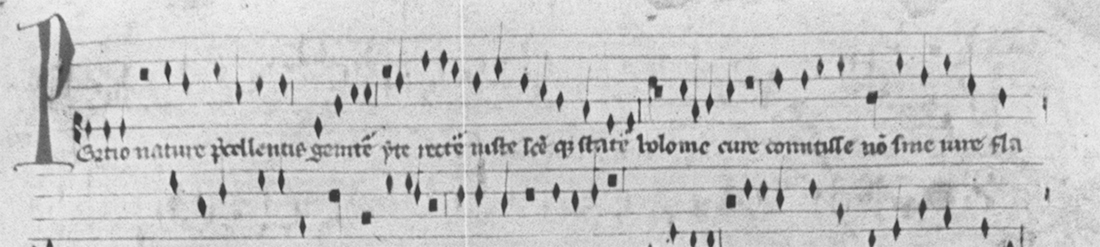 PErtio nature p̄cellentis gemīte ỹte recte iuste sc̄e qʒ state volo me cure comitisse nō sine iure fla